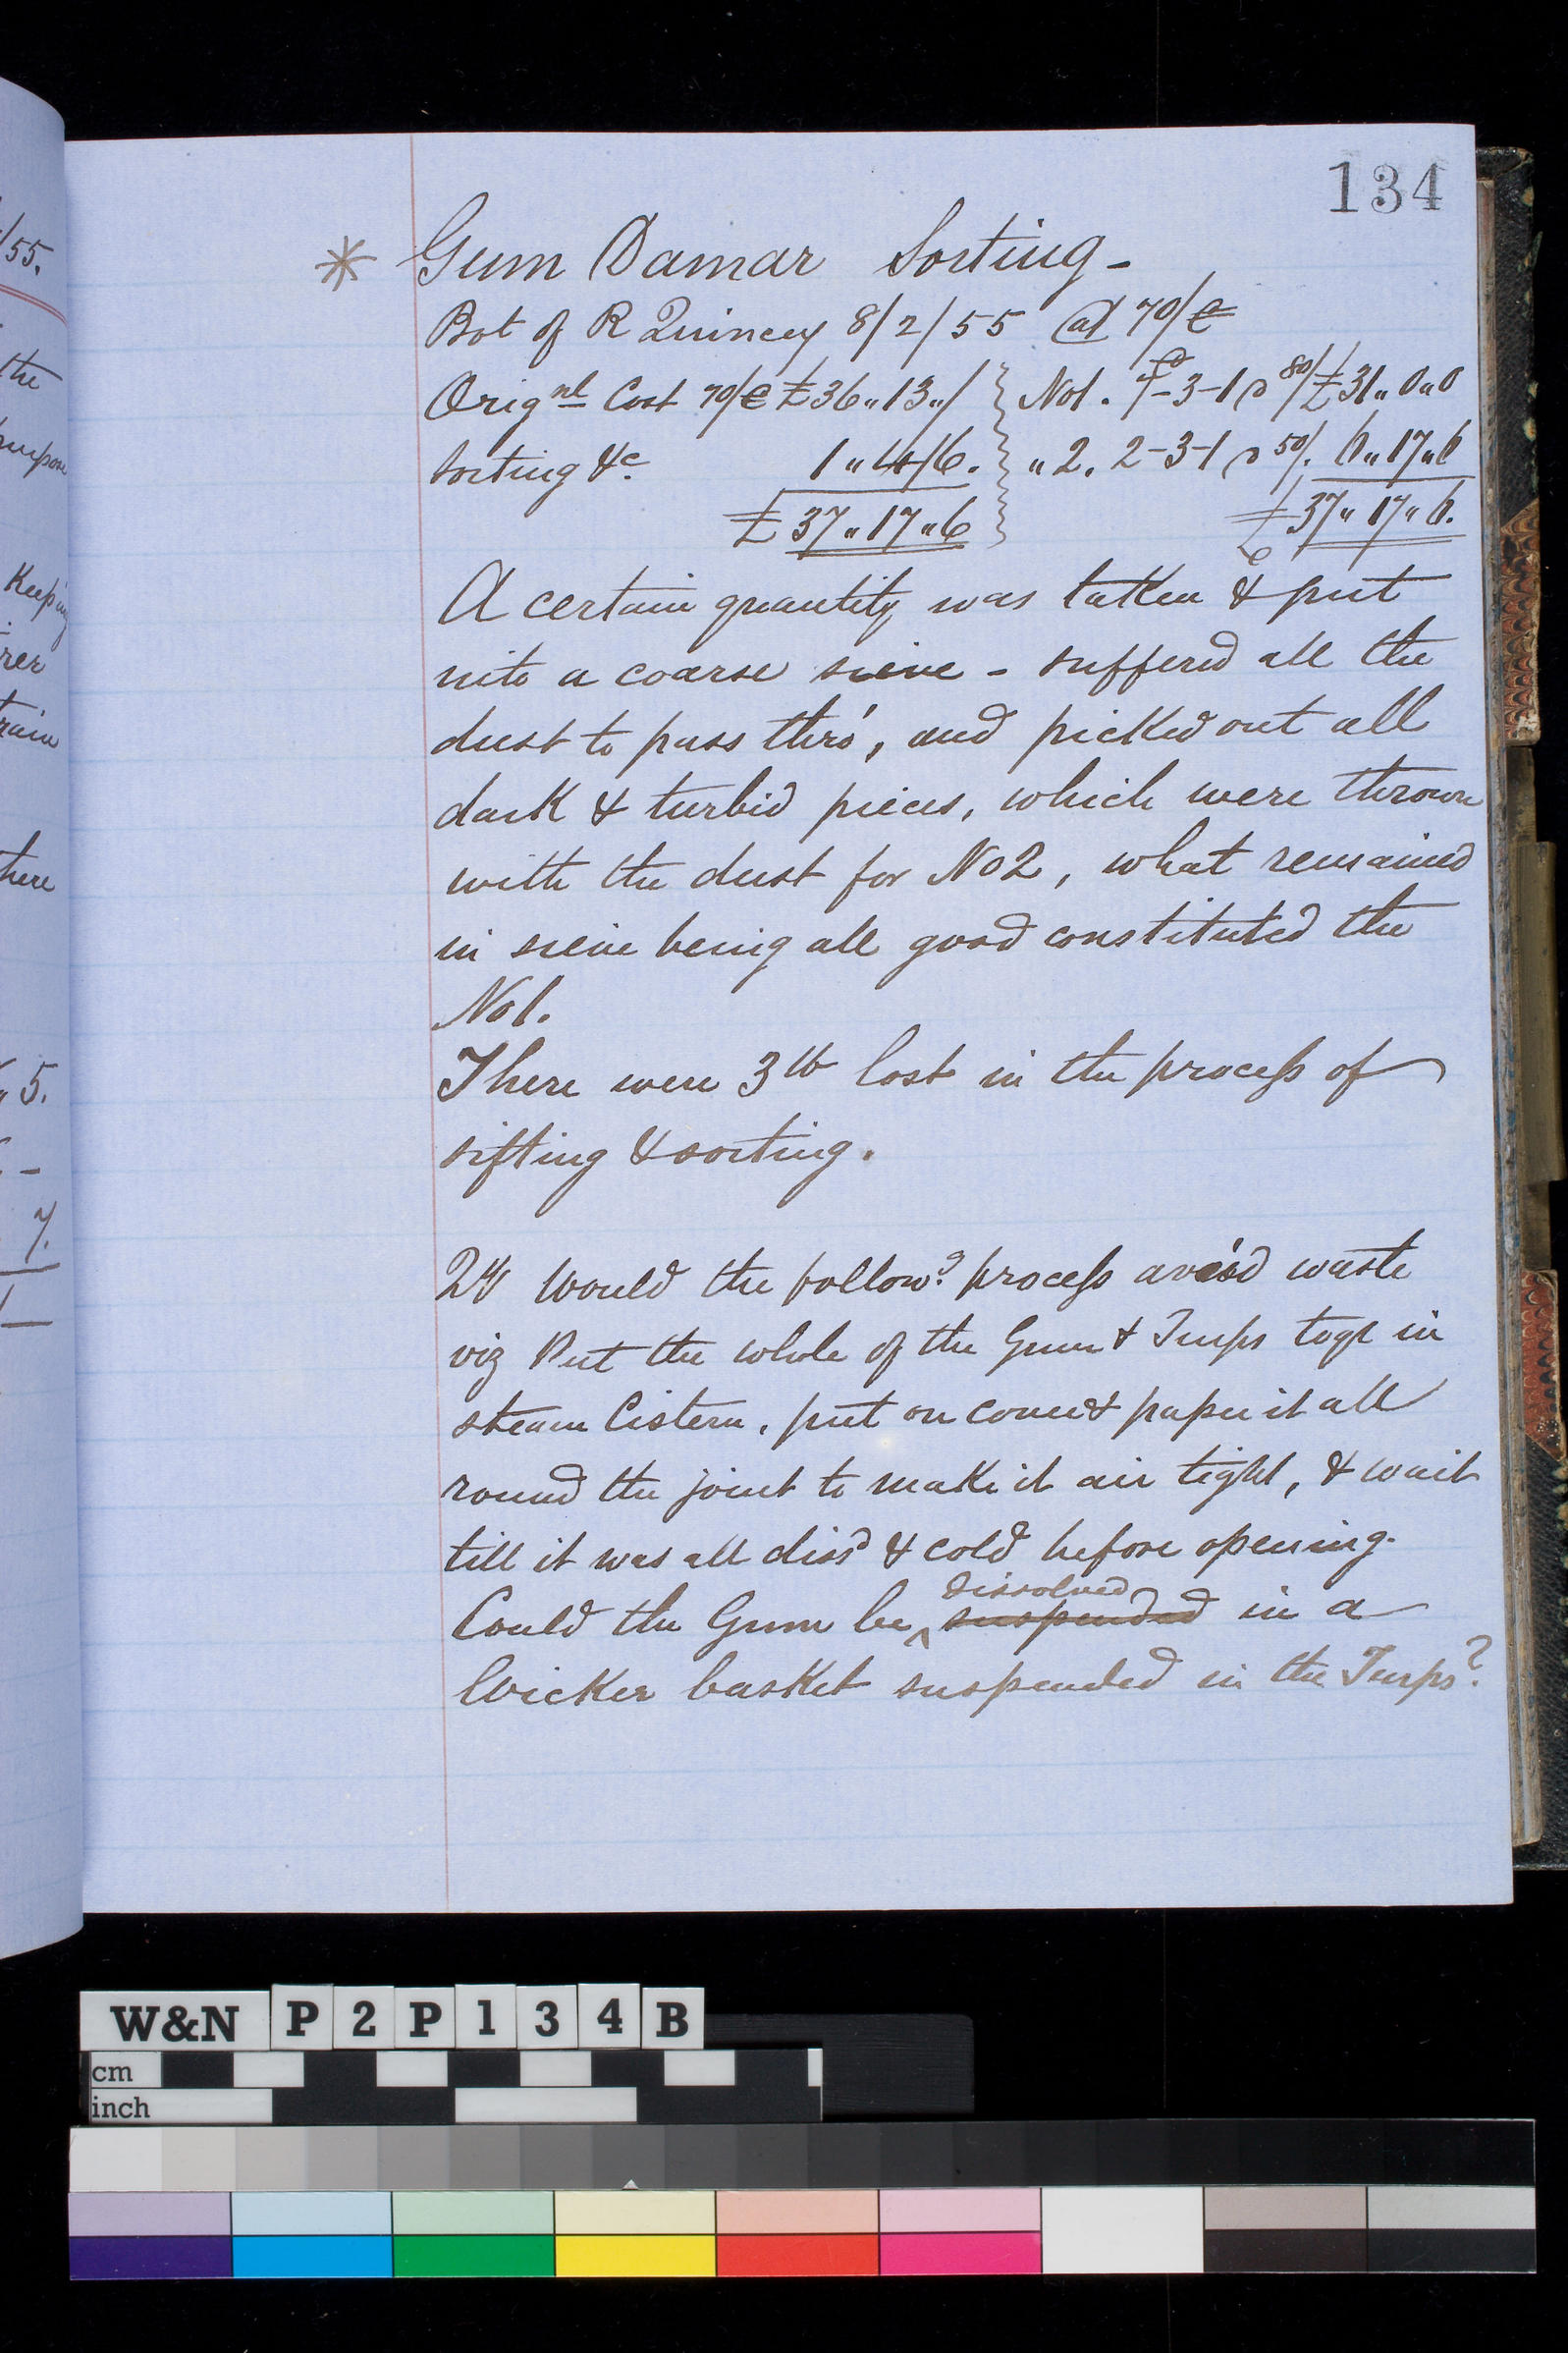 134
* Gum Damar Sorting -
Bot of R Quincey 8/2/55 @ 70/C
Orignl Cost 70/C £36„13„/ No1. 7-3-1 @ 80/ £31„0„0
Sorting &c. 1„4/6. „ 2. 2-3-1 @ 50/. 6„17„6
£37„17„6 £37„17„6.
A certain quantity was taken & put
into a coarse sieve - suffered all the
dust to pass thro', and picked out all
dark & turbid pieces, which were thrown
with the dust for No2, what remained
in sieve being all good constituted the
No1.
There were 3lb lost in the process of
sifting & sorting.
Would the followg. process avoid waste
viz Put the whole of the Gum & Turps togr in
steam Cistern, put on cover & paper it all
round the joint to make it air tight, & wait
till it was all dissd & cold before opening.
dissolved
Could the Gum be suspended in a
Wicker basket suspended in the Turps?
/55.
the
purpose
Keeping
rer
rain
here
5.
7.
W&N P 2 P 1 3 4 B
cm
inch